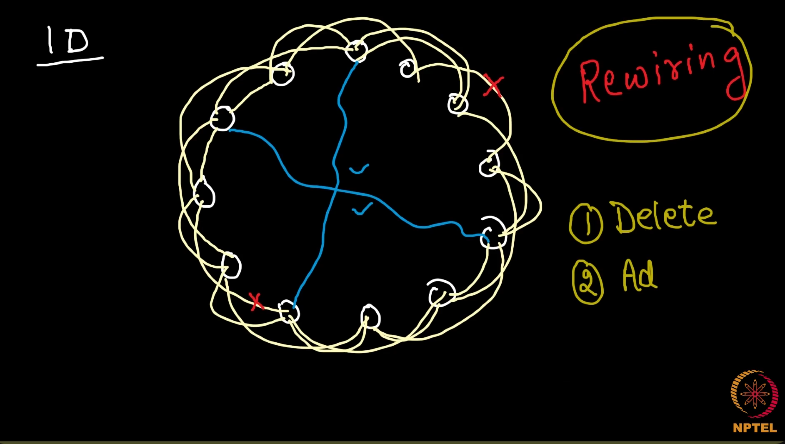 1D
Rewiring
① Delete
② Ad
NPTEL